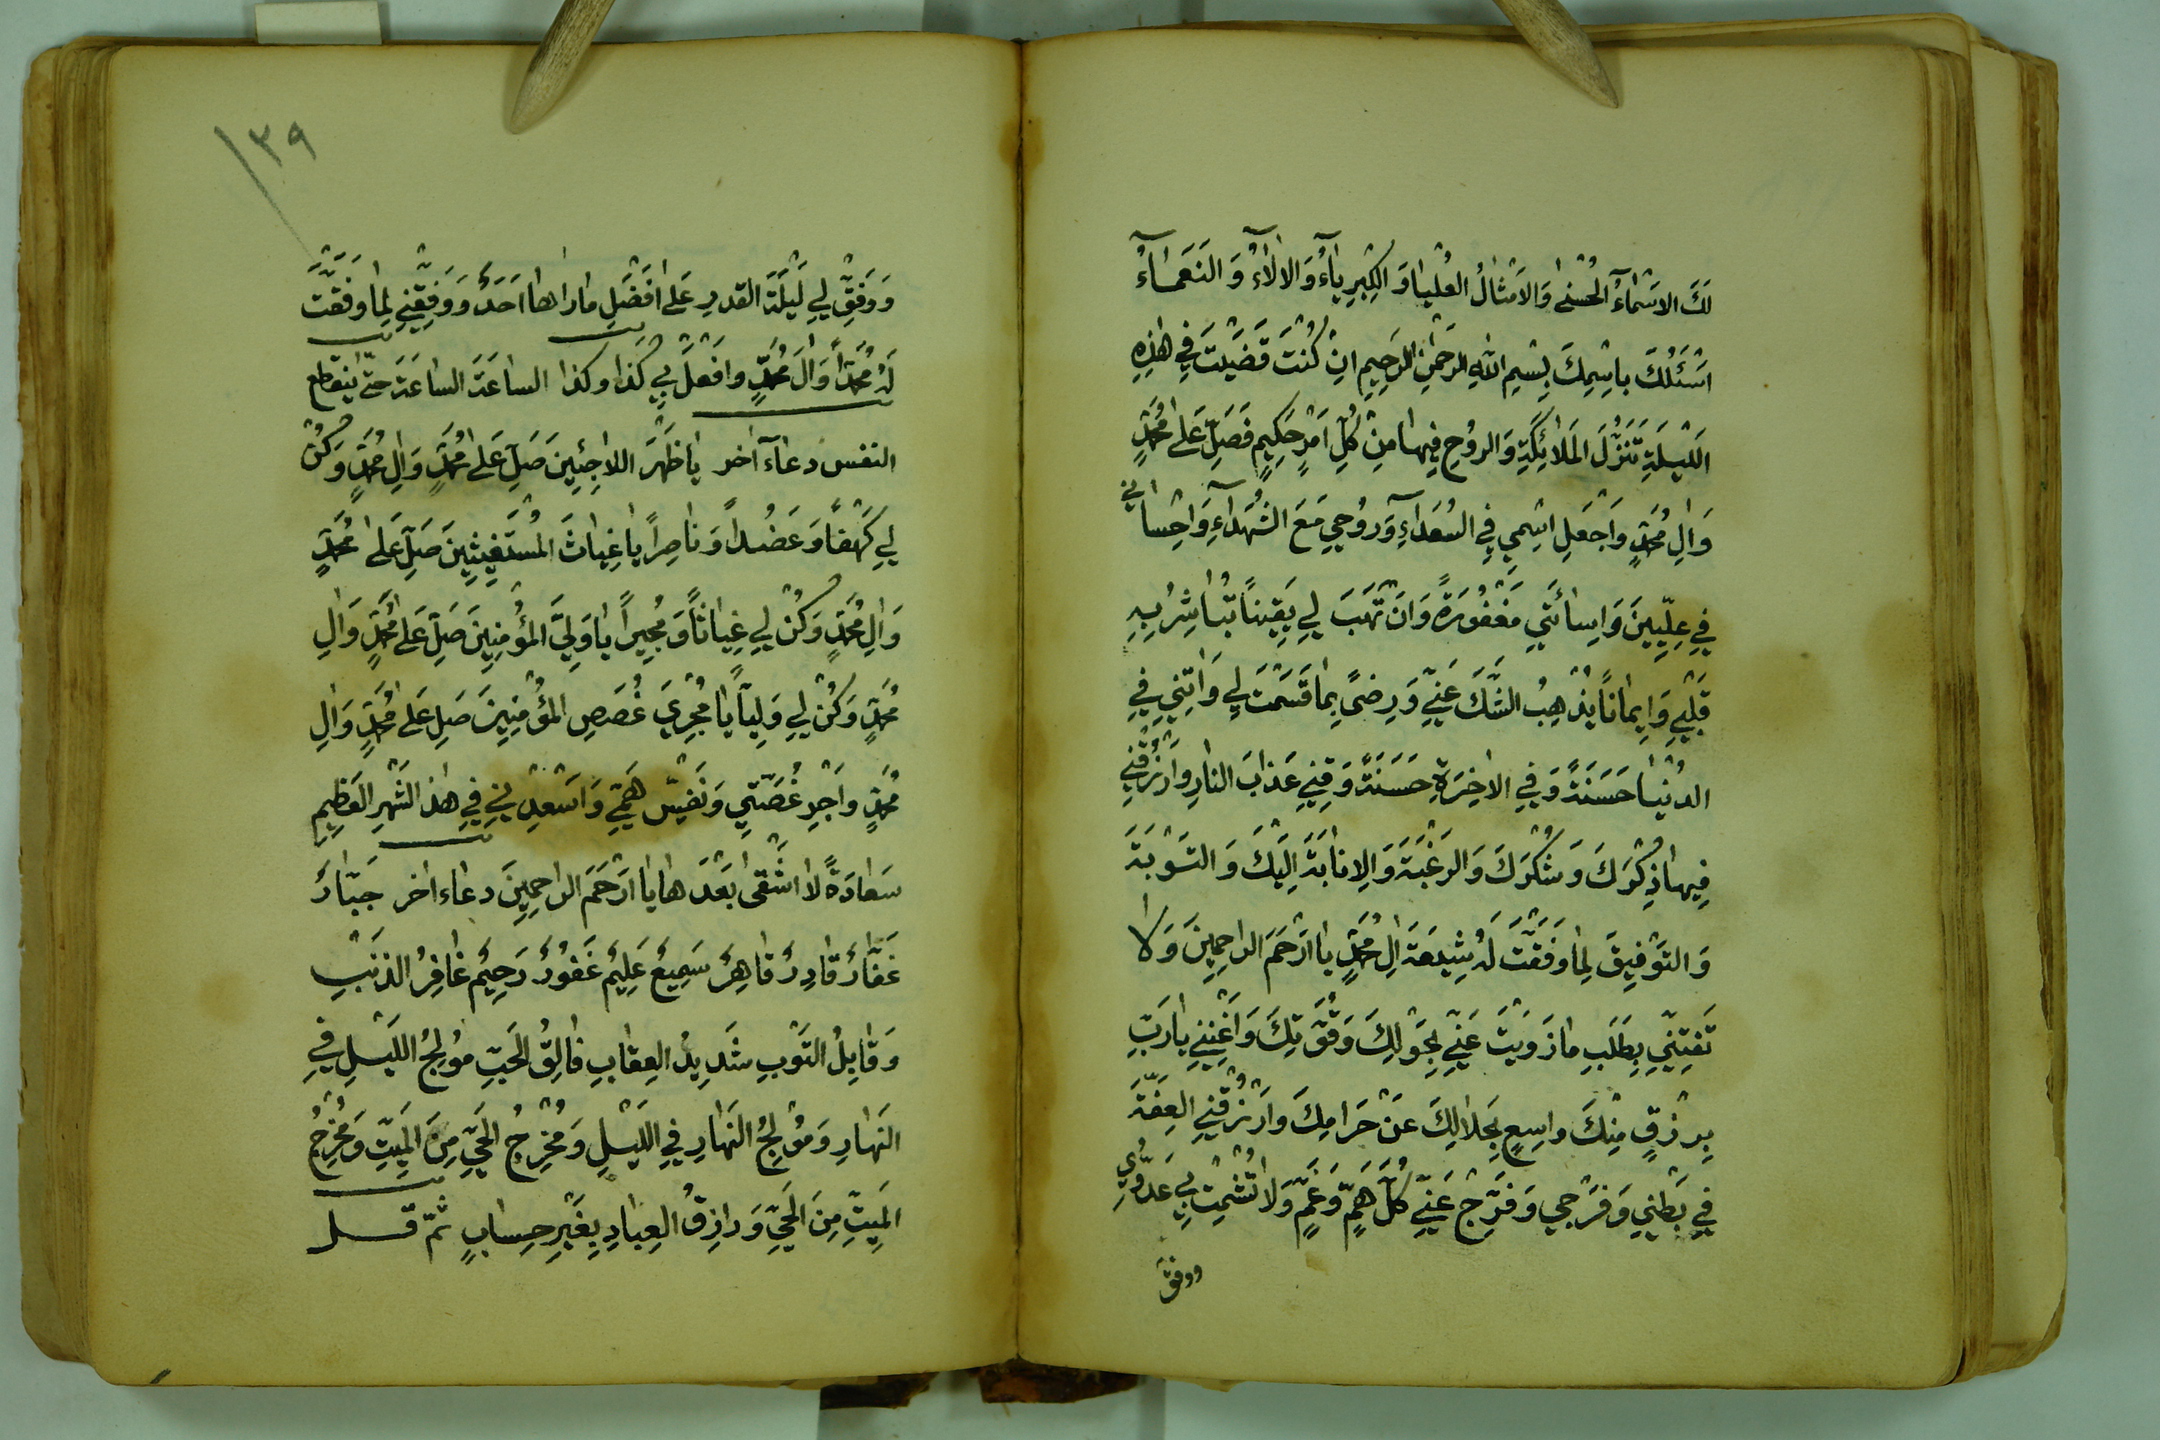 لَكَ الاَسْمَاءُ الْحُسْنٰى وَالاَمْثٰالُ الْعُلْيٰا وَ الْكِبْرِيٰاءُ وَالاٰلاٰءُ وَ النَعَمٰاءُ
اَسْئَلُكَ بِاسْمِكَ بِسْمِ اللهِ الرَحْمٰنِ الرَحِيمِ اِنْ كُنْتَ قَضَيْتَ فِي هٰذِهِ
اللَيْلَةِ تَنَزُّلَ الْمَلاٰئِكَةِ وَالروُحِ فِيهٰا مِنْ كُلِّ اَمْرٍ حَكِيمٍ فَصَلِّ عَلٰى مُحَمَّدٍ
وَاٰلِ مُحَمَّدٍ وَاجْعَلِ اسْمِي فِي السُعَدٰاءِ وَروُحِي مَعَ الشُهَدٰاءِ وَاِحْسٰانِي
فِي عِلِّيِينَ وَاِسٰائَتِي مَغْفُورَةً وَاَنْ تَهَبَ لِي يَقِينًا تُبٰاشِرُ بِهِ
قَلْبِي وَاِيمٰانًا يُذْهِبُ الشَّكَ عَنِّي وَرِضىً بِمٰا قَسَمْتَ لِي وَاٰتِنِي فِي
الدُنْيٰا حَسَنَةً وَفِي الاٰخِرَةِ حَسَنَةً وَقِنِي عَذٰابَ النارِ وَارْزُقْنِي
فِيهٰا ذِكْرَكَ وَشُكْرَكَ وَالرَغْبَةَ وَالاِنٰابَةَ اِلَيْكَ وَ التَوْبَةَ
وَالتَوْفِيقَ لِمٰا وَفَّقْتَ لَهُ شِيعَةَ اٰلِ مُحَمَّدٍ يٰا اَرْحَمَ الراحِمِينَ وَلاٰ
تَفْتِنِّي بِطَلَبِ مٰا زَوَيْتَ عَنِّي بِحَوْلِكَ وَقُوَّتِكَ وَاَغْنِنِي يٰارَبِّ
بِرِزْقٍ مِنْكَ واسِعٍ بِحَلاٰلِكَ عَنْ حَرٰامِكَ وَارْزُقْنِي الْعِفَّةَ
فِي بَطْنِي وَفَرْجِي وَفَرِّجْ عَنِّي كُلَّ هَمٍّ وَغَمٍّ وَلاٰ تُشْمِتْ بِي عَدُوِّي
ووفق
١٣٩
وَوَفِّقْ لِي لَيْلَةَ القَدرِ عَلٰى اَفْضَلِ مارٰاهٰا اَحَدٌ وَوَفِّقْنِي لِمٰا وَفَّقْتَ
لَهُ مُحَمَّدًا وَاٰلَ مُحَمَّدٍ وافْعَلْ بِي كَذا وكذا الساعَةَ الساعَةَ حتّى ينقطع
النفس دعاء اٰخر ياظَهْرَ اللاجِئِينَ صَلِّ عَلٰى مُحَمَّدٍ وَاٰلِ مُحَمَّدٍ وَكُنْ
لِي كَهْفًا وَعَضُدًا وَنٰاصِرًا يٰا غِيٰاثَ الْمُسْتَغِيثِينَ صَلِّ عَلٰى مُحَمَّدٍ
وَاٰلِ مُحَمَّدٍ وَكُنْ لِي غِيٰاثًا وَمُجِيرًا يٰا وَلِيَّ الْمُؤْمِنِينَ صَلِّ عَلٰى مُحَمَّدٍ وَاٰلِ
مُحَمَّدٍ وَكُنْ لِي وَلِيًّا يٰا مُجْرِيَ غُصَصِ الْمُؤْمِنِينَ صَلِّ عَلٰى مُحَمَّدٍ وَاٰلِ
مُحَمَّدٍ وَاَجْرِ غُصَّتِي وَنَفِّسْ هَمِّي وَاَسْعِدْنِي فِي هٰذا الشَهْرِ العَظِيمِ
سَعٰادَةً لاٰ اَشْقٰى بَعْدَهٰا يٰا اَرْحَمَ الراحِمِينَ دعاء اٰخر جَبّٰارٌ
غَفّٰارٌ قٰادِرٌ قٰاهِرٌ سَمِيعٌ عَلِيمٌ غَفُورٌ رَحِيمٌ غٰافِرُ الذَنْبِ
وَقٰابِلُ التَوْبِ شَدِيدُ العِقٰابِ فٰالِقُ الْحَبِّ مُولِجُ اللَيْلِ فِي
النَهٰارِ وَمُولِجُ النَهٰارِ فِي اللَيْلِ وَمُخْرِجُ الْحَيِّ مِنَ الْمَيِّتِ وَمُخْرِجُ
الْمَيِّتِ مِنَ الْحَيِّ وَرازِقُ العِبٰادِ بِغَيْرِ حِسٰابٍ ثمّ قل